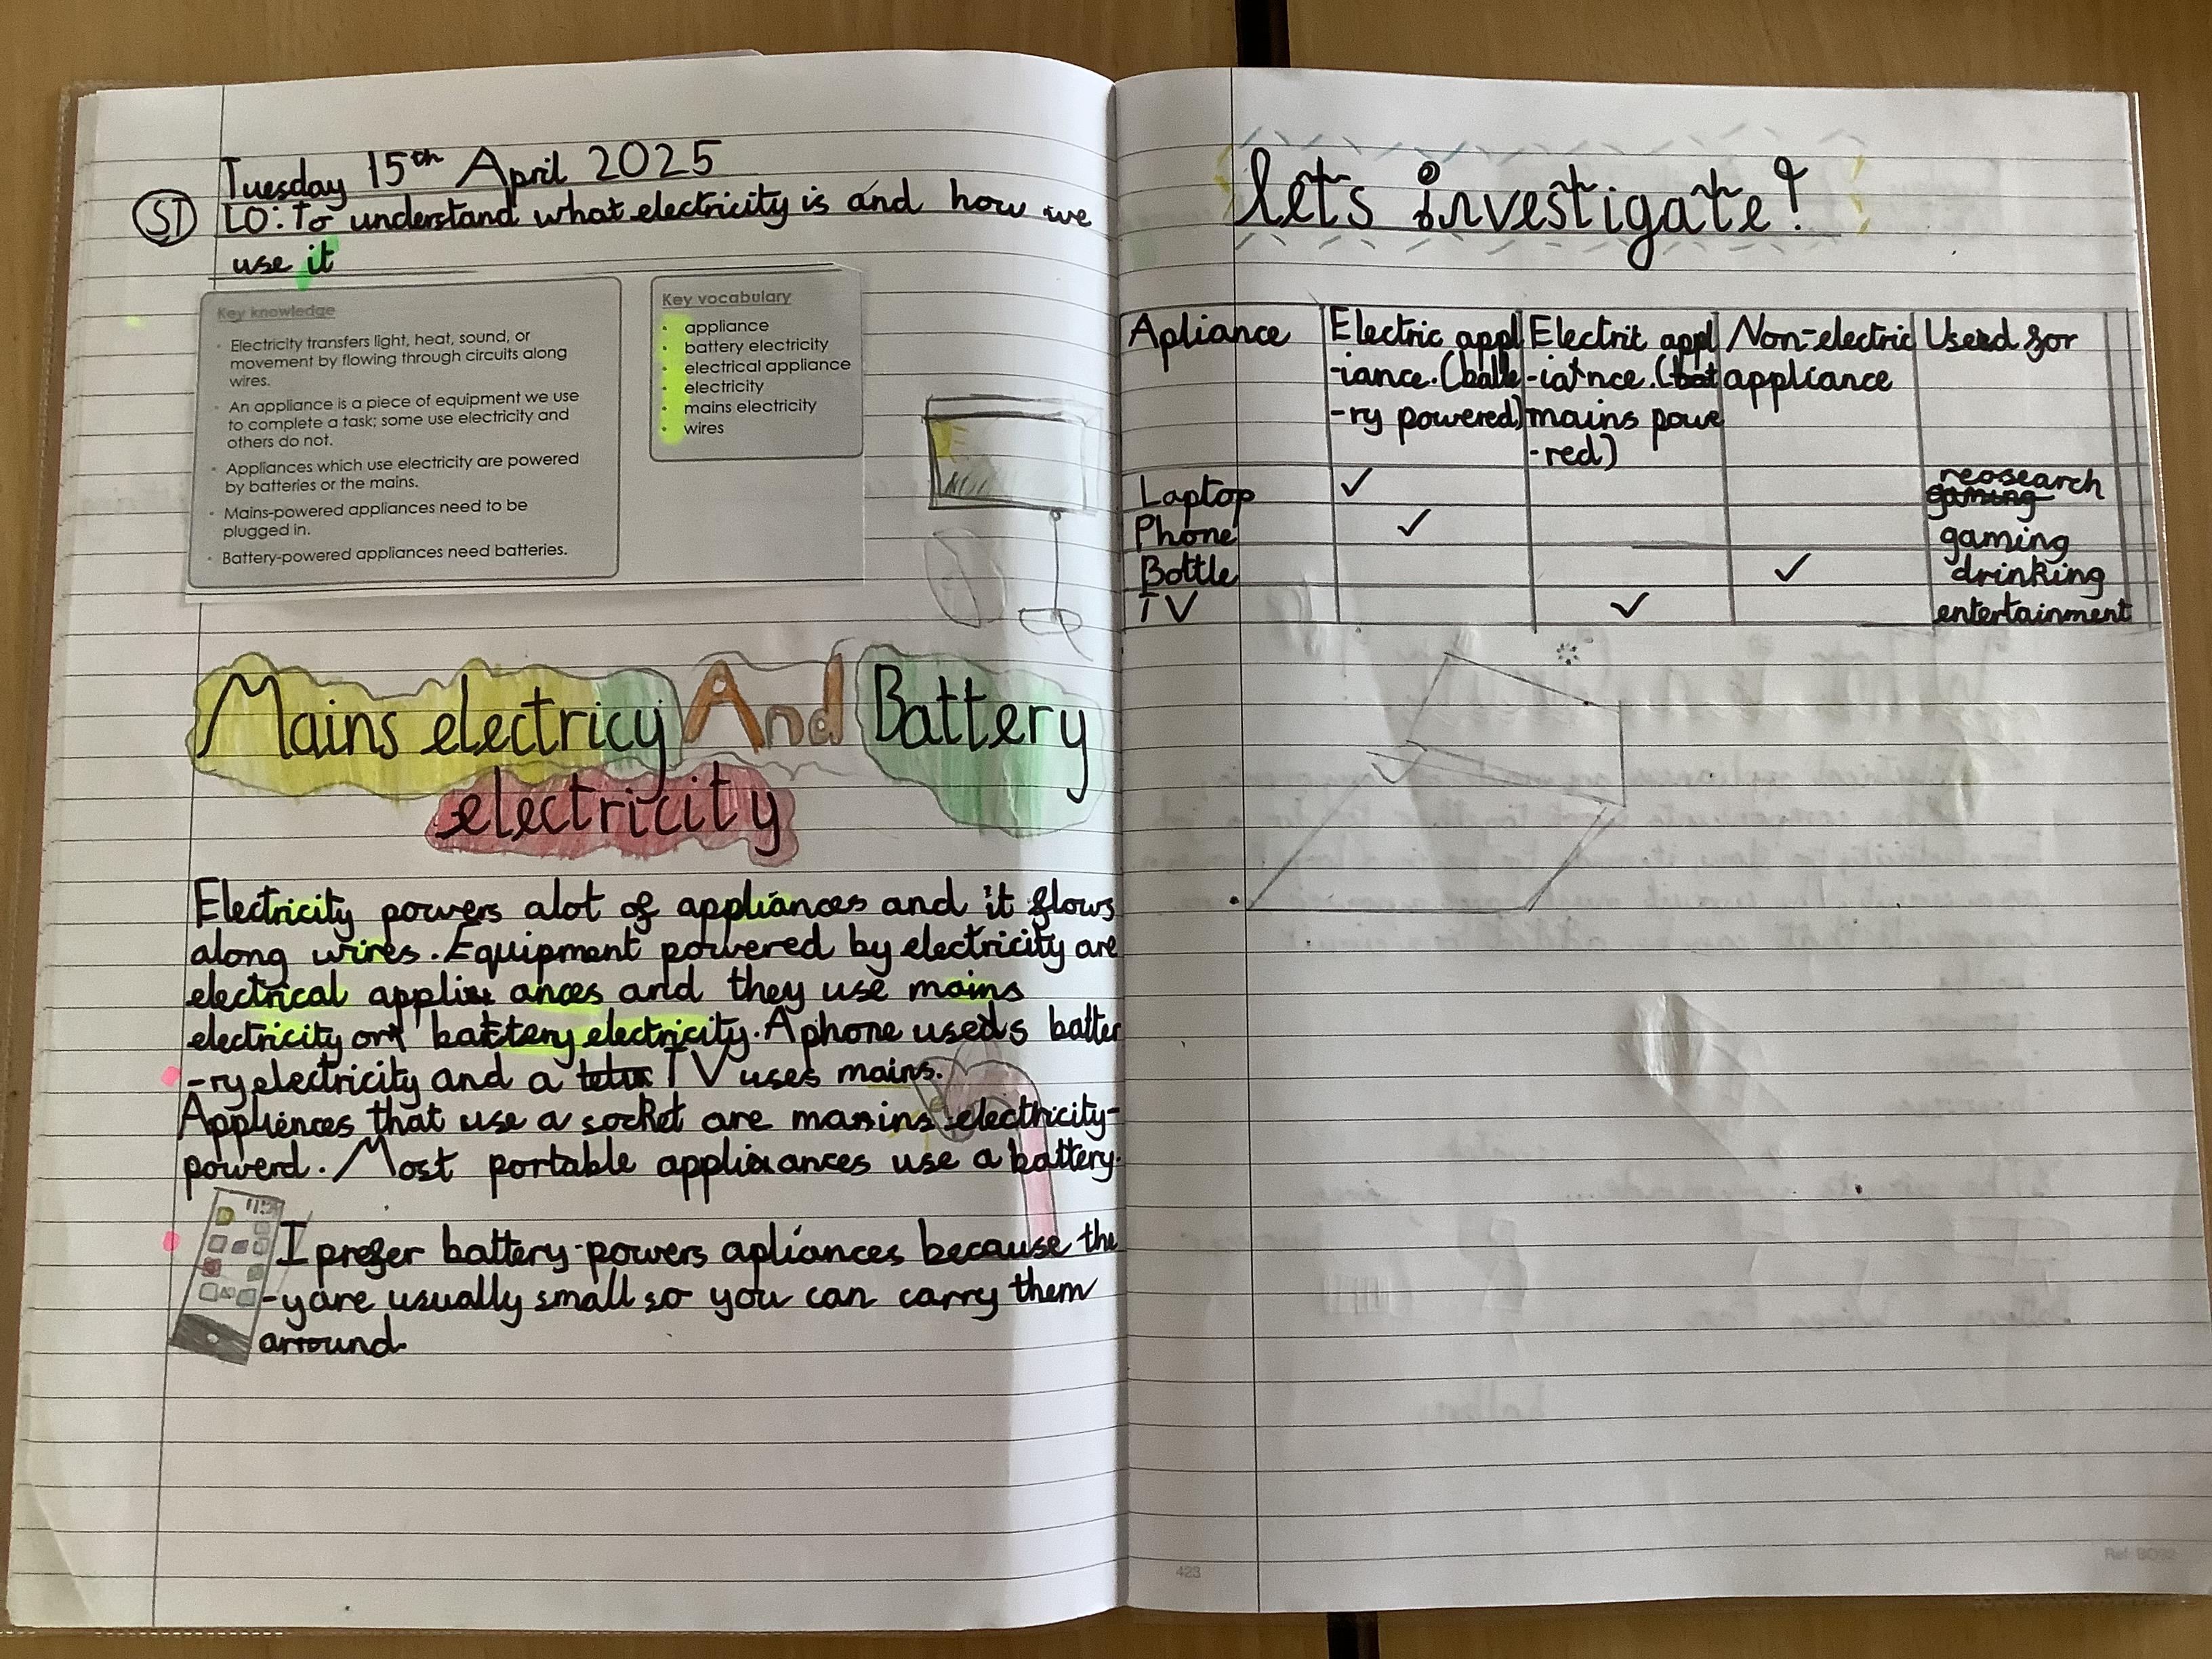 Tuesday 15th April 2025
SI
LO: To understand what electricity is and how we
use it
Key knowledge
Electricity transfers light, heat, sound, or
movement by flowing through circuits along
wires.
An appliance is a piece of equipment we use
to complete a task; some use electricity and
others do not.
Appliances which use electricity are powered
by batteries or the mains.
Mains-powered appliances need to be
plugged in.
Battery-powered appliances need batteries.
Key vocabulary
appliance
battery electricity
electrical appliance
electricity
mains electricity
wires
Mains electricy And Battery
electricity
Electricity powers alot of appliances and it flows
along wires. Equipment powered by electricity are
electrical appli ances and they use mains
electricity or battery electricity. A phone uses batter
-ry electricity and a TV uses mains.
Appliences that use a socket are mains electricity-
powerd. Most portable appliances use a battery.
I prefer battery-powers apliances because the
-y are usually small so you can carry them
arround.
lets investigate!
Apliance
Electric appl
-iance. (batte
-ry powered)
Electric appl
-iance. (
mains powe
-red)
Non-electric
appliance
Used for
Laptop ✓ research
gaming
Phone ✓ gaming
Bottle ✓ drinking
TV ✓ entertainment
423